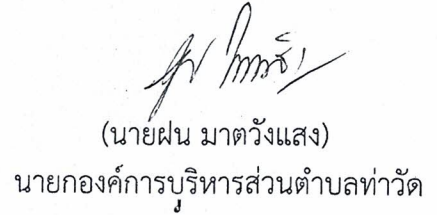 (นายฝน มาตวังแสง)
นายกองค์การบริหารส่วนตำบลท่าวัด